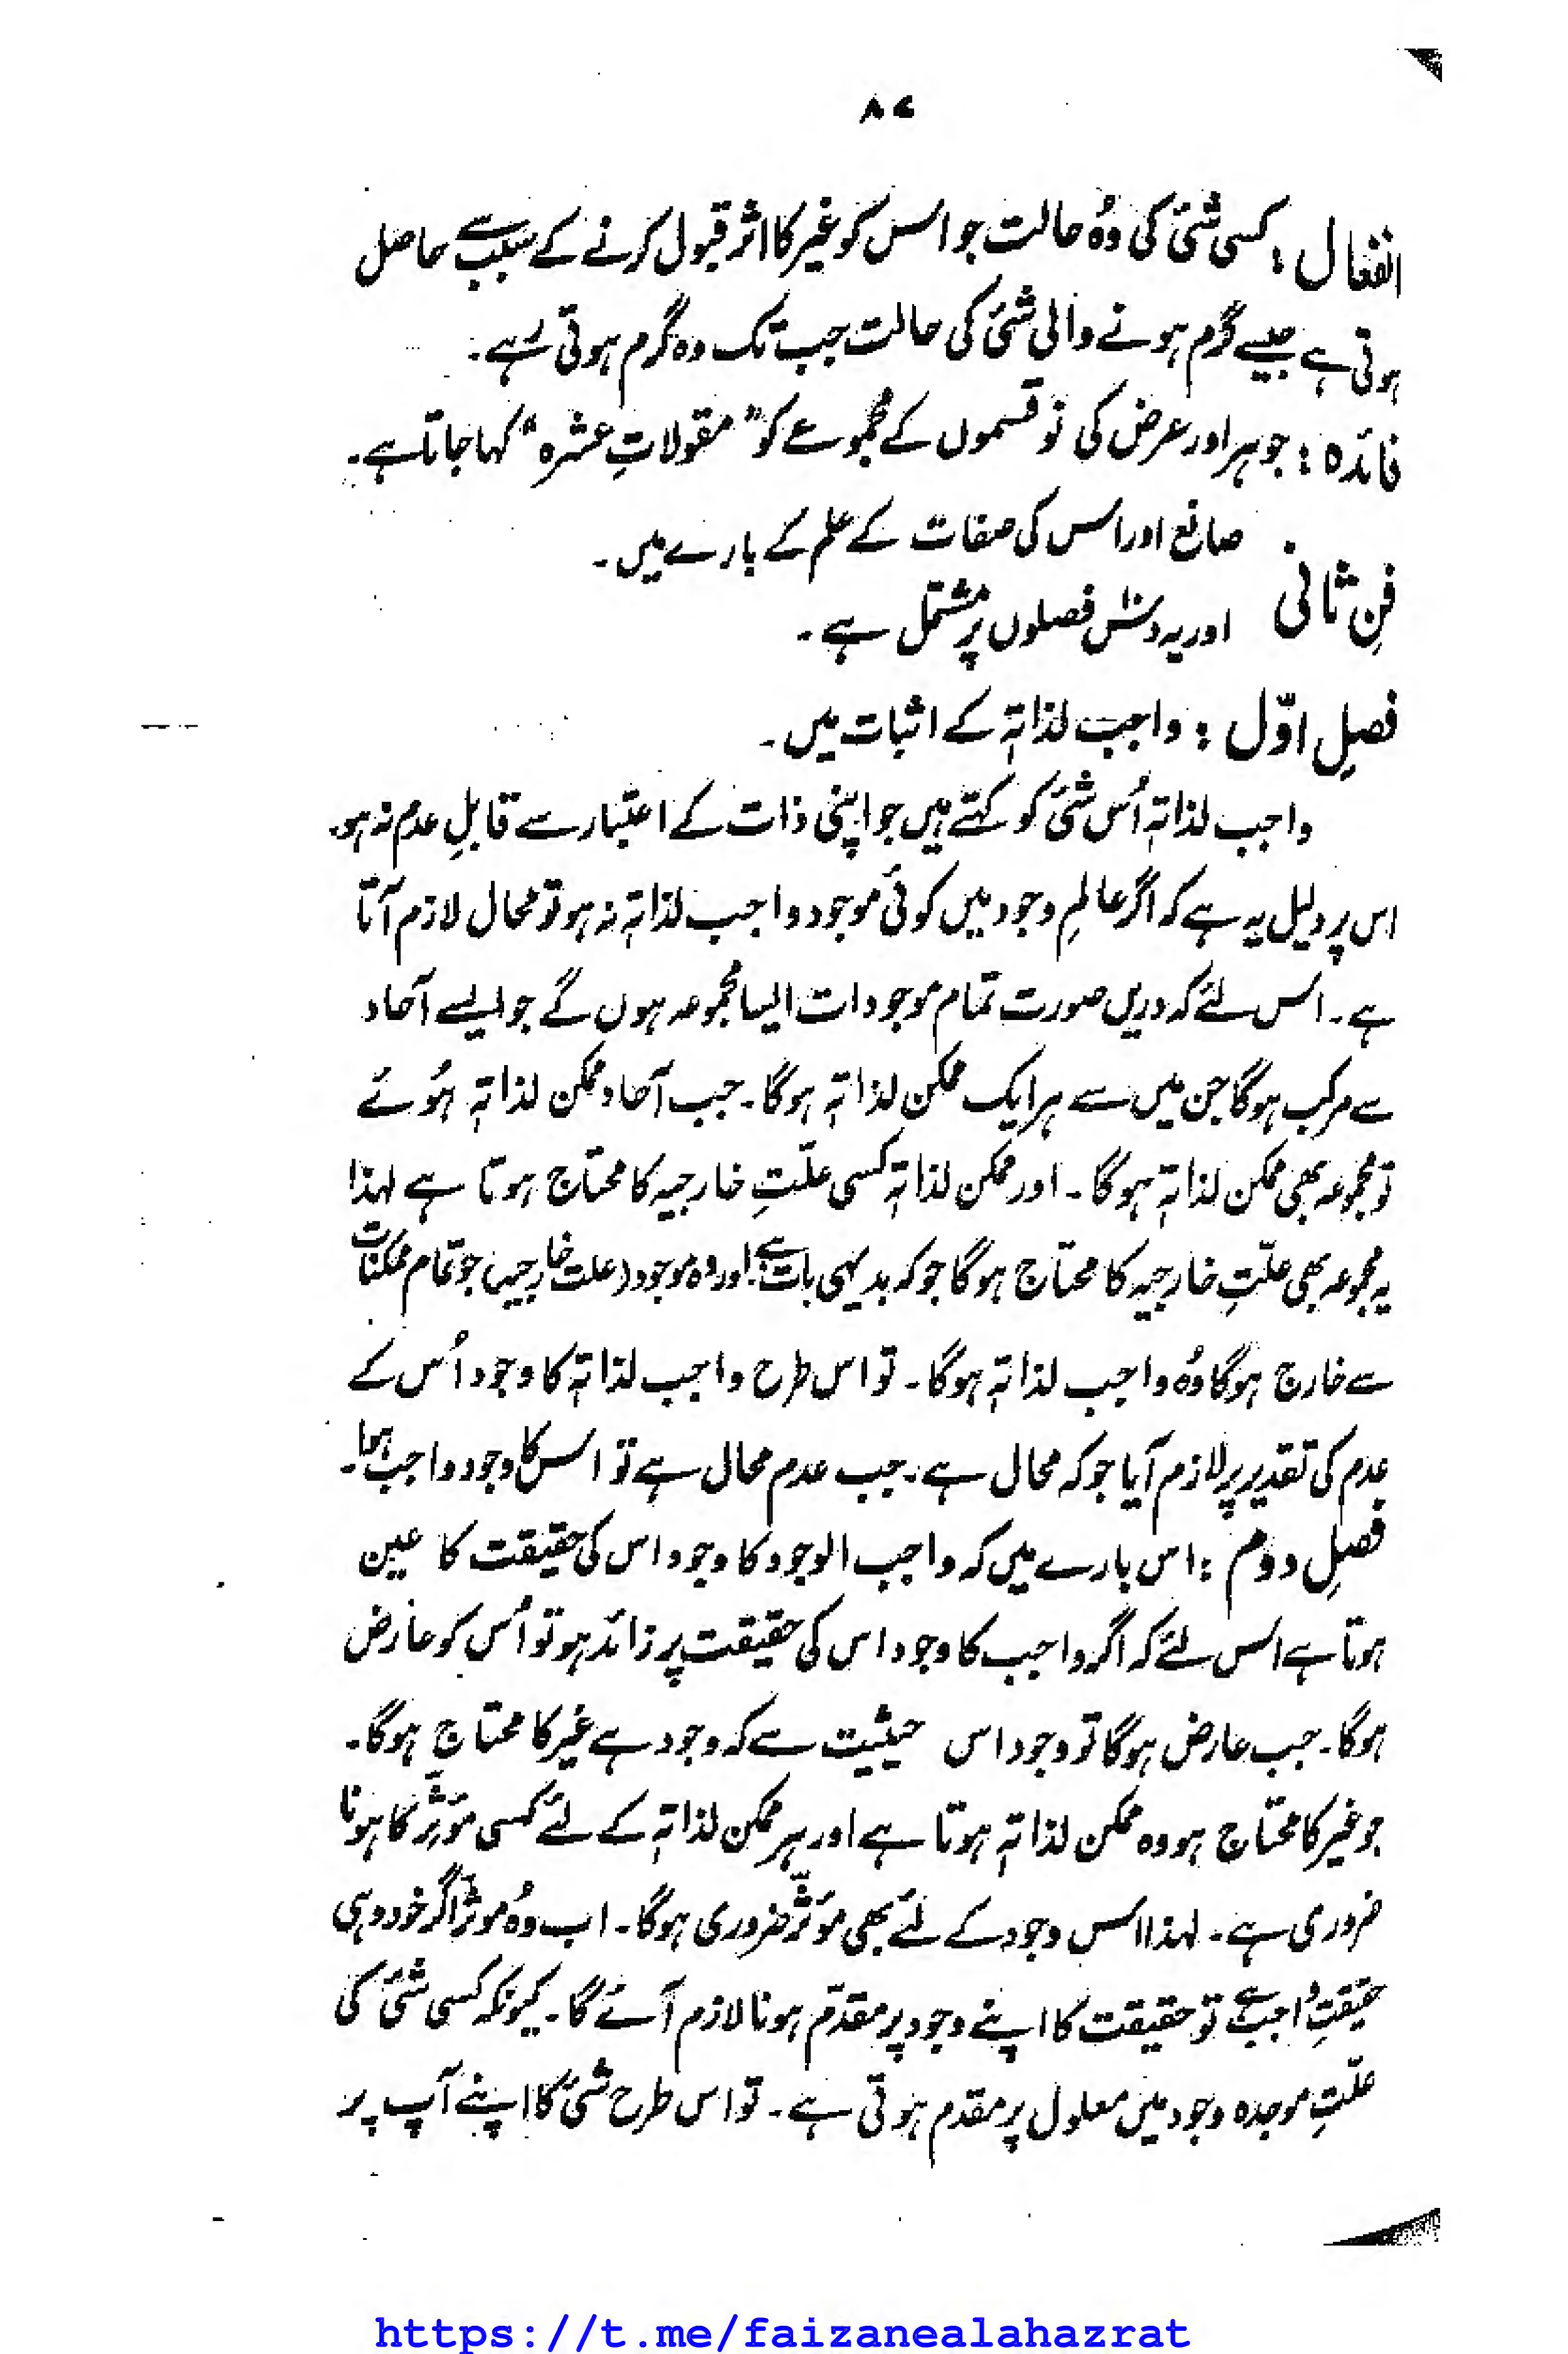 ۸۷
انفعال : کسی شئ کی وُہ حالت جو اس کو غیر کا اثر قبول کرنے کے سبب سے حاصل
ہوتی ہے جیسے گرم ہونے والی شئ کی حالت جب تک وہ گرم ہوتی رہے۔
فائدہ : جوہر اور عرض کی نو قسموں کے مجموعے کو "مقولاتِ عشرہ" کہا جاتا ہے۔
صانع اور اس کی صفات کے علم کے بارے میں۔
فنِ ثانی
اور یہ دس فصلوں پر مشتمل ہے۔
فصلِ اوّل : واجب لذاتہٖ کے اثبات میں۔
واجب لذاتہٖ اُس شئ کو کہتے ہیں جو اپنی ذات کے اعتبار سے قابلِ عدم نہ ہو۔
اس پر دلیل یہ ہے کہ اگر عالمِ وجود میں کوئی موجود واجب لذاتہٖ نہ ہو تو محال لازم آتا
ہے۔ اس لئے کہ دریں صورت تمام موجودات ایسا مجموعہ ہوں گے جو ایسے آحاد
سے مرکب ہوگا جن میں سے ہر ایک ممکن لذاتہٖ ہوگا۔ جب آحاد ممکن لذاتہٖ ہُوئے
تو مجموعہ بھی ممکن لذاتہٖ ہوگا۔ اور ممکن لذاتہٖ کسی علّتِ خارجیہ کا محتاج ہوتا ہے لہذا
یہ مجموعہ بھی علّتِ خارجیہ کا محتاج ہوگا جو کہ بدیہی بات ہے۔ اور وہ موجود (علت خارجیہ) جو تمام ممکنات
سے خارج ہوگا وُہ واجب لذاتہٖ ہوگا۔ تو اس طرح واجب لذاتہٖ کا وجود اُس کے
عدم کی تقدیر پر لازم آیا جو کہ محال ہے۔ جب عدم محال ہے تو اس کا وجود واجب ہوا۔
فصلِ دوم : اس بارے میں کہ واجب الوجود کا وجود اس کی حقیقت کا عین
ہوتا ہے اس لئے کہ اگر واجب کا وجود اس کی حقیقت پر زائد ہو تو اُس کو عارض
ہوگا۔ جب عارض ہوگا تو وجود اس حیثیت سے کہ وجود ہے غیر کا محتاج ہوگا۔
جو غیر کا محتاج ہو وہ ممکن لذاتہٖ ہوتا ہے اور ہر ممکن لذاتہٖ کے لئے کسی مؤثِّر کا ہونا
ضروری ہے۔ لہذا اس وجود کے لئے بھی مؤثِّر ضروری ہوگا۔ اب وُہ مؤثر اگر خود وہی
حقیقتِ واجب ہے تو حقیقت کا اپنے وجود پر مقدّم ہونا لازم آئے گا۔ کیونکہ کسی شئ کی
علّتِ موجدہ وجود میں معلول پر مقدم ہوتی ہے۔ تو اس طرح شئ کا اپنے آپ پر
https://t.me/faizanealahazrat